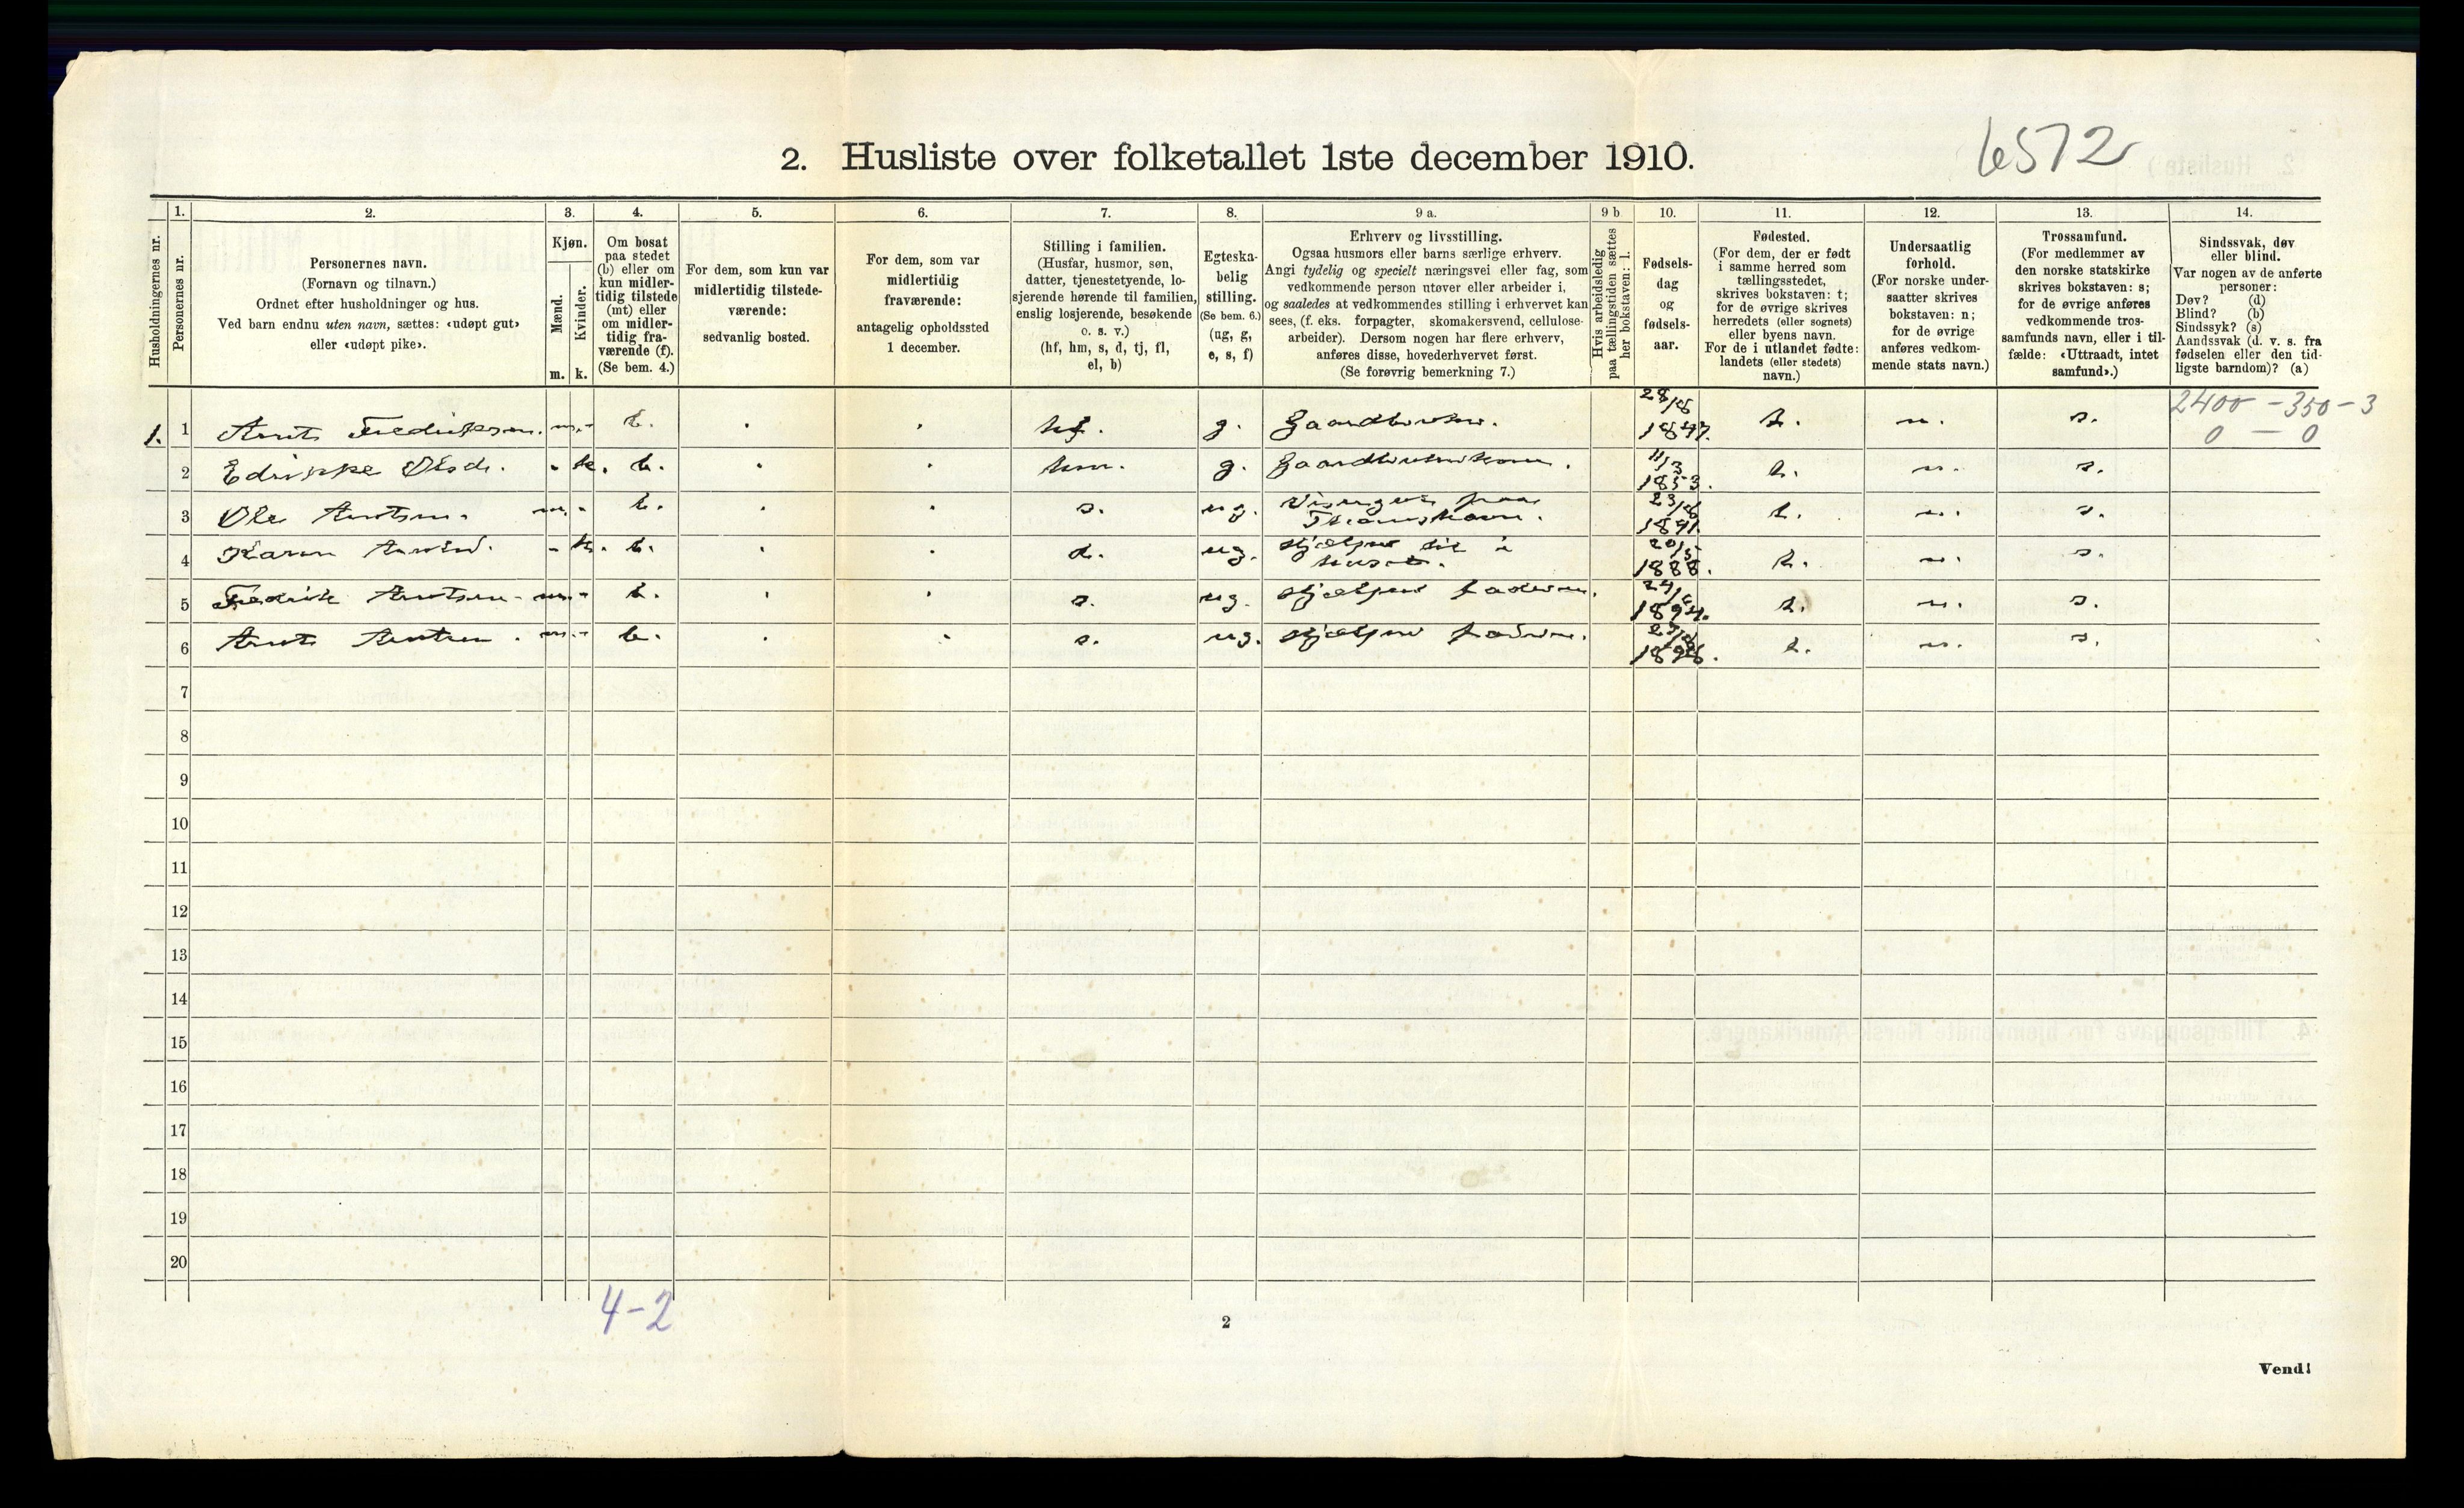 2. Husliste over folketallet 1ste december 1910.
6572
Husholdningernes nr.
1.
Personernes nr.
2.
Personernes navn.
(Fornavn og tilnavn.)
Ordnet efter husholdninger og hus.
Ved barn endnu uten navn, sættes: «udøpt gut»
eller «udøpt pike».
3.
Kjøn.
Mænd.
Kvinder.
m. k.
4.
Om bosat
paa stedet
(b) eller om
kun midler-
tidig tilstede
(mt) eller
om midler-
tidig fra-
værende (f).
(Se bem. 4.)
5.
For dem, som kun var
midlertidig tilstede-
værende:
sedvanlig bosted.
6.
For dem, som var
midlertidig
fraværende:
antagelig opholdssted
1 december.
7.
Stilling i familien.
(Husfar, husmor, søn,
datter, tjenestetyende, lo-
sjerende hørende til familien,
enslig losjerende, besøkende
o. s. v.)
(hf, hm, s, d, tj, fl,
el, b)
8.
Egteska-
belig
stilling.
(Se bem. 6.)
(ug, g,
e, s, f)
9 a.
Erhverv og livsstilling.
Ogsaa husmors eller barns særlige erhverv.
Angi tydelig og specielt næringsvei eller fag, som
vedkommende person utøver eller arbeider i,
og saaledes at vedkommendes stilling i erhvervet kan
sees, (f. eks. forpagter, skomakersvend, cellulose-
arbeider). Dersom nogen har flere erhverv,
anføres disse, hovederhvervet først.
(Se forøvrig bemerkning 7.)
9 b
Hvis arbeidsledig
paa tællingstiden sættes
her bokstaven: l.
10.
Fødsels-
dag
og
fødsels-
aar.
11.
Fødested.
(For dem, der er født
i samme herred som
tællingsstedet,
skrives bokstaven: t;
for de øvrige skrives
herredets (eller sognets)
eller byens navn.
For de i utlandet fødte:
landets (eller stedets)
navn.)
12.
Undersaatlig
forhold.
(For norske under-
saatter skrives
bokstaven: n;
for de øvrige
anføres vedkom-
mende stats navn.)
13.
Trossamfund.
(For medlemmer av
den norske statskirke
skrives bokstaven: s;
for de øvrige anføres
vedkommende tros-
samfunds navn, eller i til-
fælde: «Uttraadt, intet
samfund».)
14.
Sindssvak, døv
eller blind.
Var nogen av de anførte
personer:
Døv? (d)
Blind? (b)
Sindssyk? (s)
Aandssvak (d. v. s. fra
fødselen eller den tid-
ligste barndom)? (a)
2400 - 350 - 3
0 - 0
1. 1 Arnt Fredriksen. m. - b. . . hf. g. Gaardbruker. 1847. t. n. s.
2 Edrikke Olsd. - k. b. . . hm. g. Gaardbrukerkone. 11/3 1853. t. n. s.
3 Ole Arntsen. m. - b. . . s. ug. paa 1891. t. n. s.
4 Karen Arntsd. - k. b. . . d. ug. Hjælper til i huset. 20/5 1888. t. n. s.
5 Fredrik Arntsen - m. - b. . . s. ug. Hjælper faderen. 1894. t. n. s.
6 Arnt Arntsen. m. - b. . . s. ug. Hjælper faderen. t. n. s.
7
8
9
10
11
12
13
14
15
16
17
18
19
20
4-2
2
Vend!